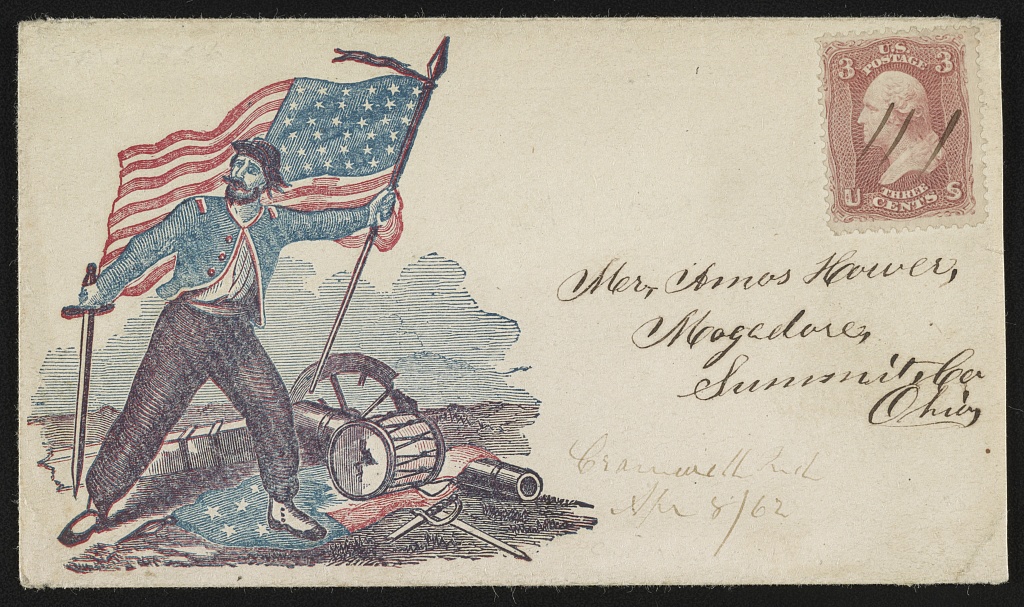 U.S.
POSTAGE
3 3
THREE
CENTS
U S
Mr, Amos Hower,
Mogadore,
Summit, Co
Ohio,
Cromwell Ind
Apr 8/62